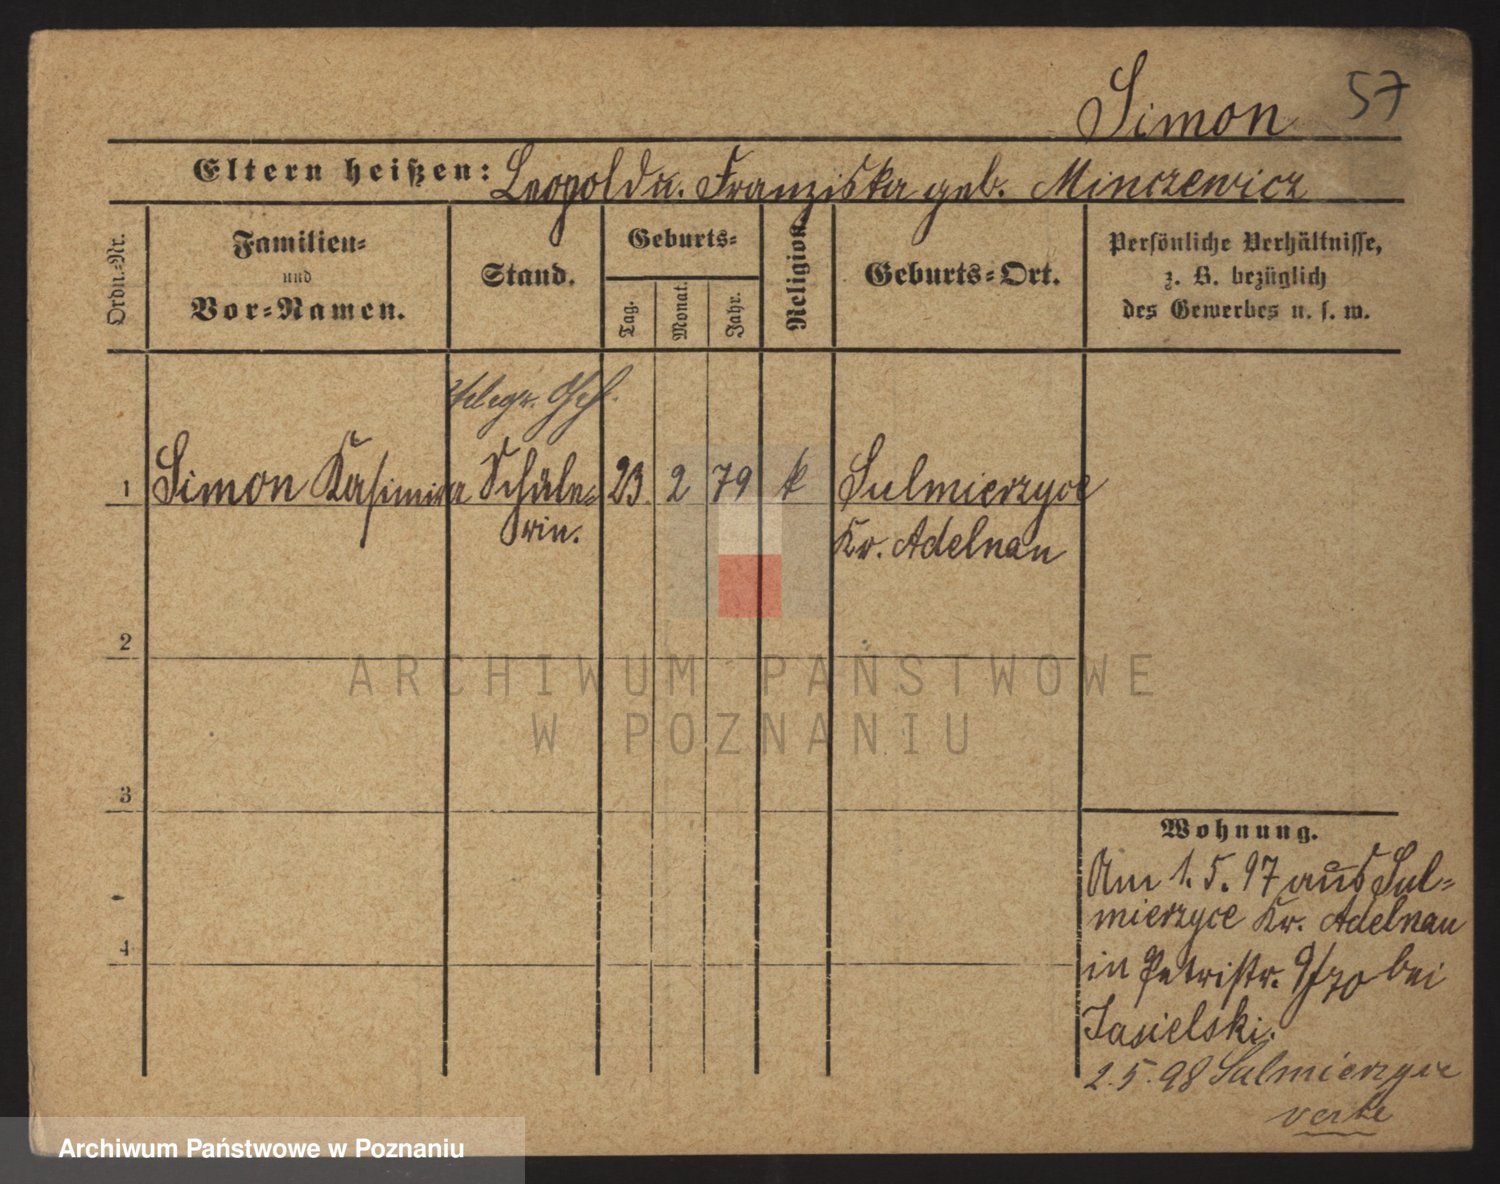 Simon 57
Eltern heißen: Leopold u. Franziska geb. Minczewicz
Ordn.-Nr.
Familien-
und
Vor-Namen.
Stand.
Geburts-
Tag.
Monat.
Jahr.
Religion.
Geburts-Ort.
Persönliche Verhältnisse,
z. B. bezüglich
des Gewerbes u. s. w.
Telegr. Geh.
1 Simon Kasimira Schüle- 23 2 79 k Sulmierzyce
rin. Kr. Adelnau
2
3
4
Wohnung.
Am 1. 5. 97 aus Sul-
mierzyce Kr. Adelnau
in Petristr. 9/70 bei
Jasielski.
2. 5. 98 Sulmierzyce
ARCHIWUM PAŃSTWOWE
W POZNANIU
Archiwum Państwowe w Poznaniu